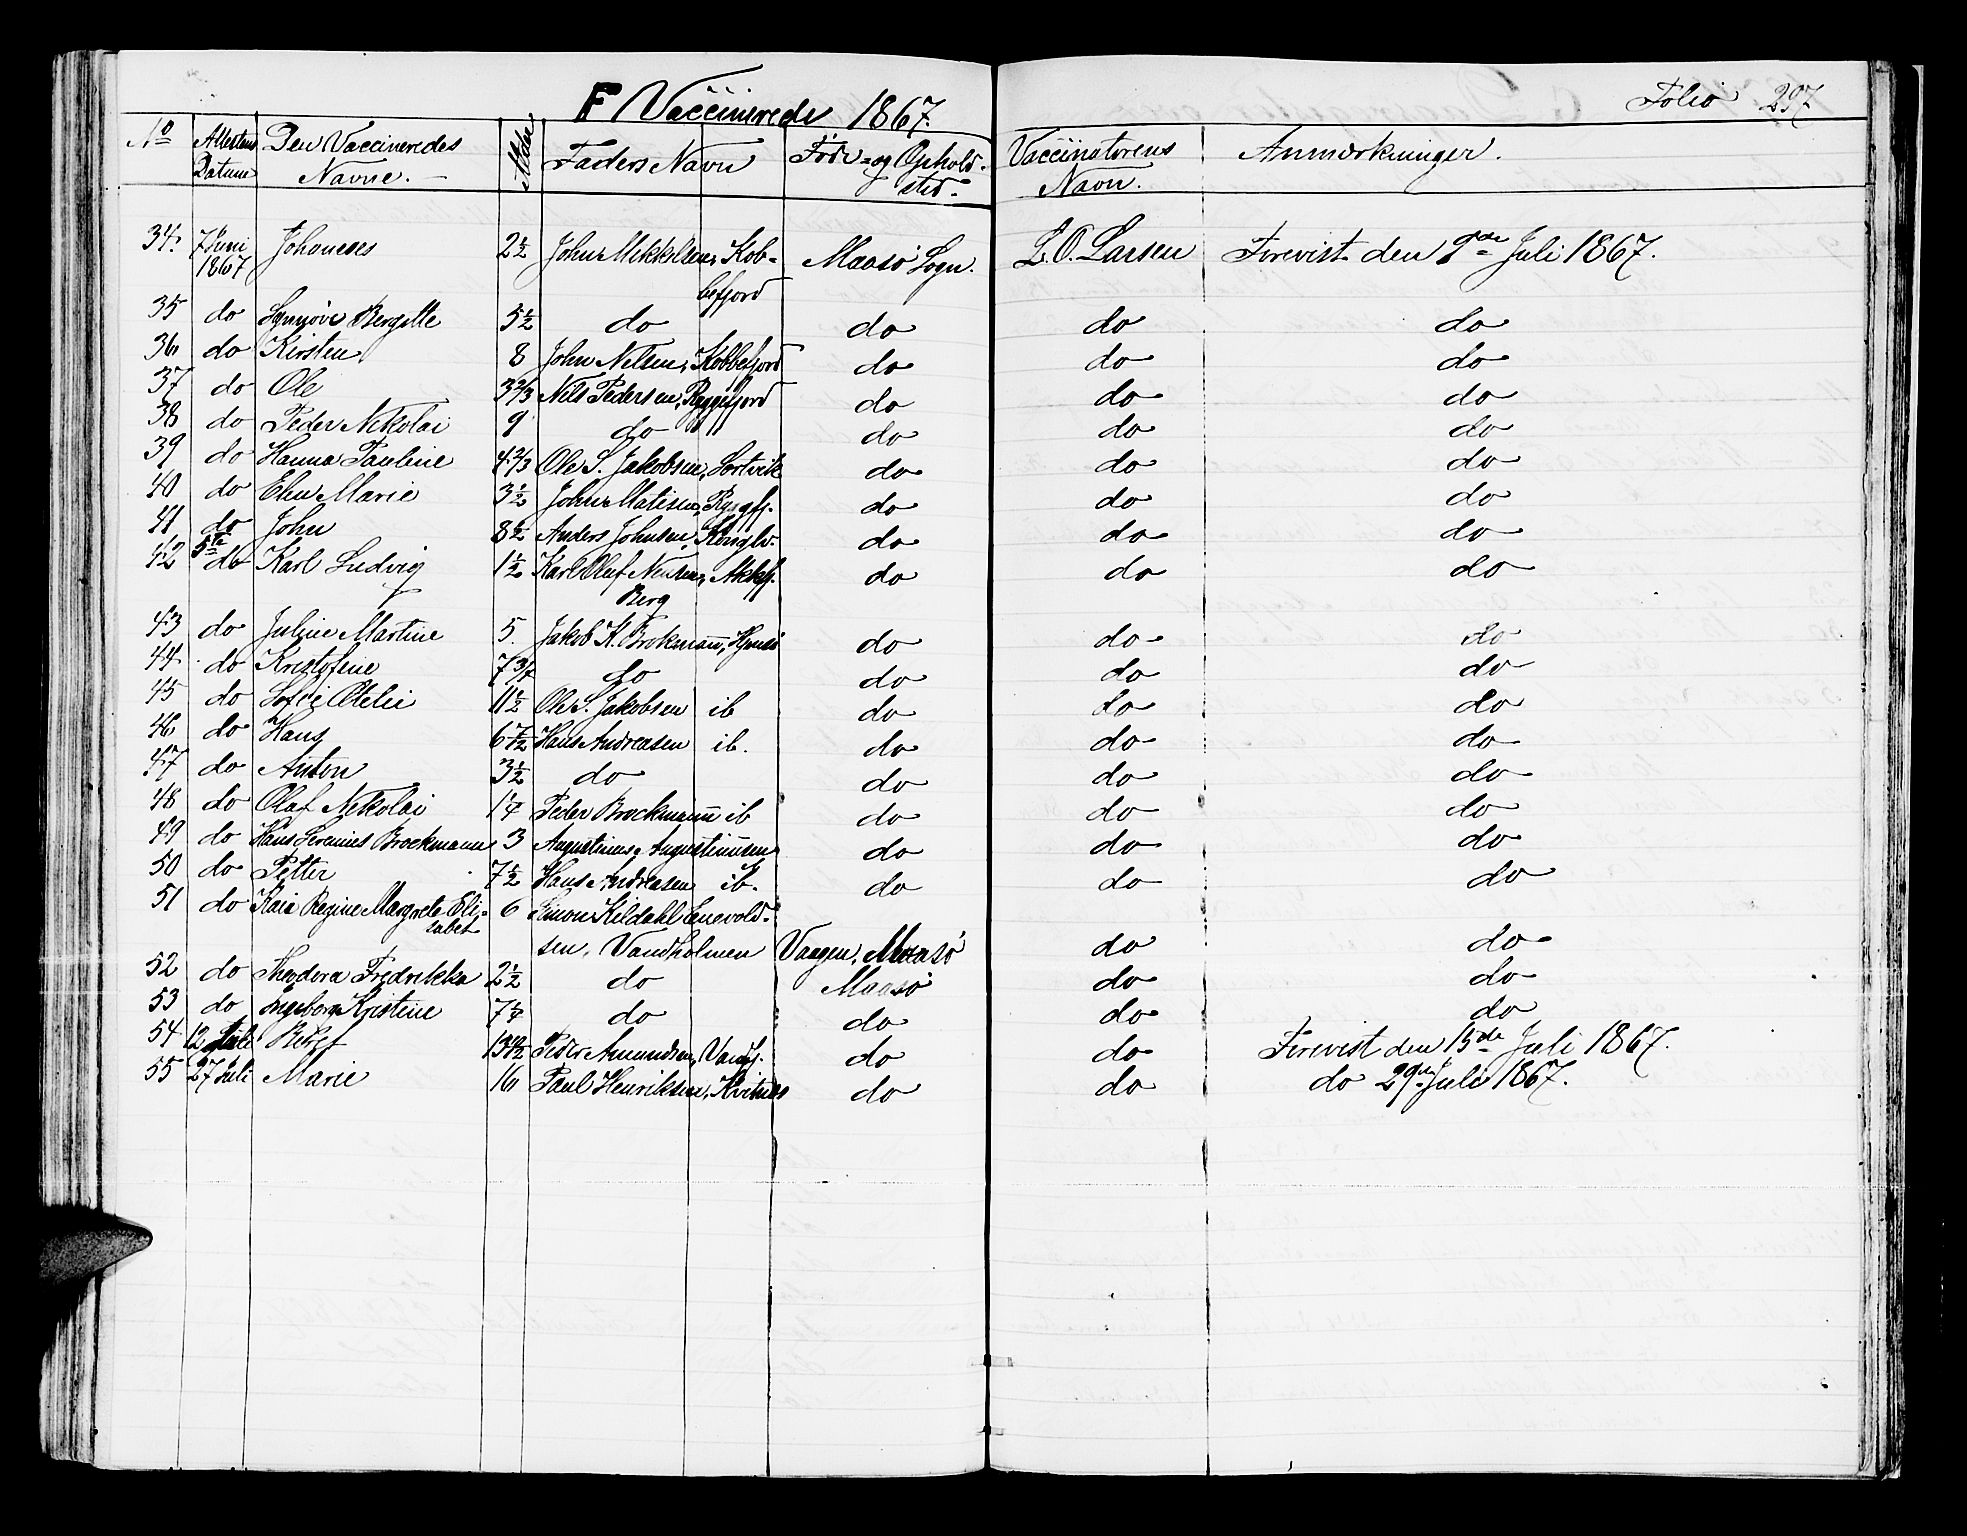 F Vaccinerede 1867.
Folio 297
No Attestens Datum Den Vaccineredes Navne. Alder Faders Navn Føde- og Ophold-sted. Vaccinatorens Navn. Anmærkninger.
34. 7 Juni 1867 Johannes 2½ John Mikkelsen, Kob-befjord Maasø Sogn. L. O. Larsen Forevist den 9de Juli 1867.
35 do Synnøve Bergitte 5½ do do do do
36 do Kirsten 8 John Nilsen, Kobbefjord do do do
37 do Ole 3⅔ Nils Pedersen, Ryggefjord do do do
38 do Peder Nikolai 9 do do do do
39 do Hanna Pauline 4⅔ Ole S. Jakobsen, Sortvik do do do
40 do Elen Marie 3½ John Matisen, Ryggfj. do do do
41 do John 8½ Anders Johnsen, do do do
42 5te do Karl Ludvig 1½ Karl Oluf Nilsen, Akkfj. do do do
Berg
43 do Juline Martine 5. Jakob K. Brokmann, Hjelmsø do do do
44 do Kristofine 7¾ do do do do
45 do Sofie Otelie 11½ Ole S. Jakobsen ib do do do
46 do Hans 6½ Hans Andreasen ib. do do do
47 do Anton 3½ do do do do
48 do Olaf Nikolai 1¼ Peder Brockmann ib do do do
49 do Hans Jeremies Brockmann 3 Augustinus Augustinusen do do do
50 do Petter 7½ Hans Andreasen ib. do do do
51 do Kaia Regine Margrete Eli-sabet 6 Simon Kildahl Enevold-
sen, Vandholmen Vaagen, Maasø do do
52 do Theodora Fredrikka 2½ do Maasø do do
53 do Ingeborg Kristine 7¼ do do do do
54 12 Juli Beret 13½ Peder Amundsen, do do Forevist den 15de Juli 1867.
55 27 Juli Marie 16 Paul Henriksen, Kvitnes do do do 29de Juli 1867.